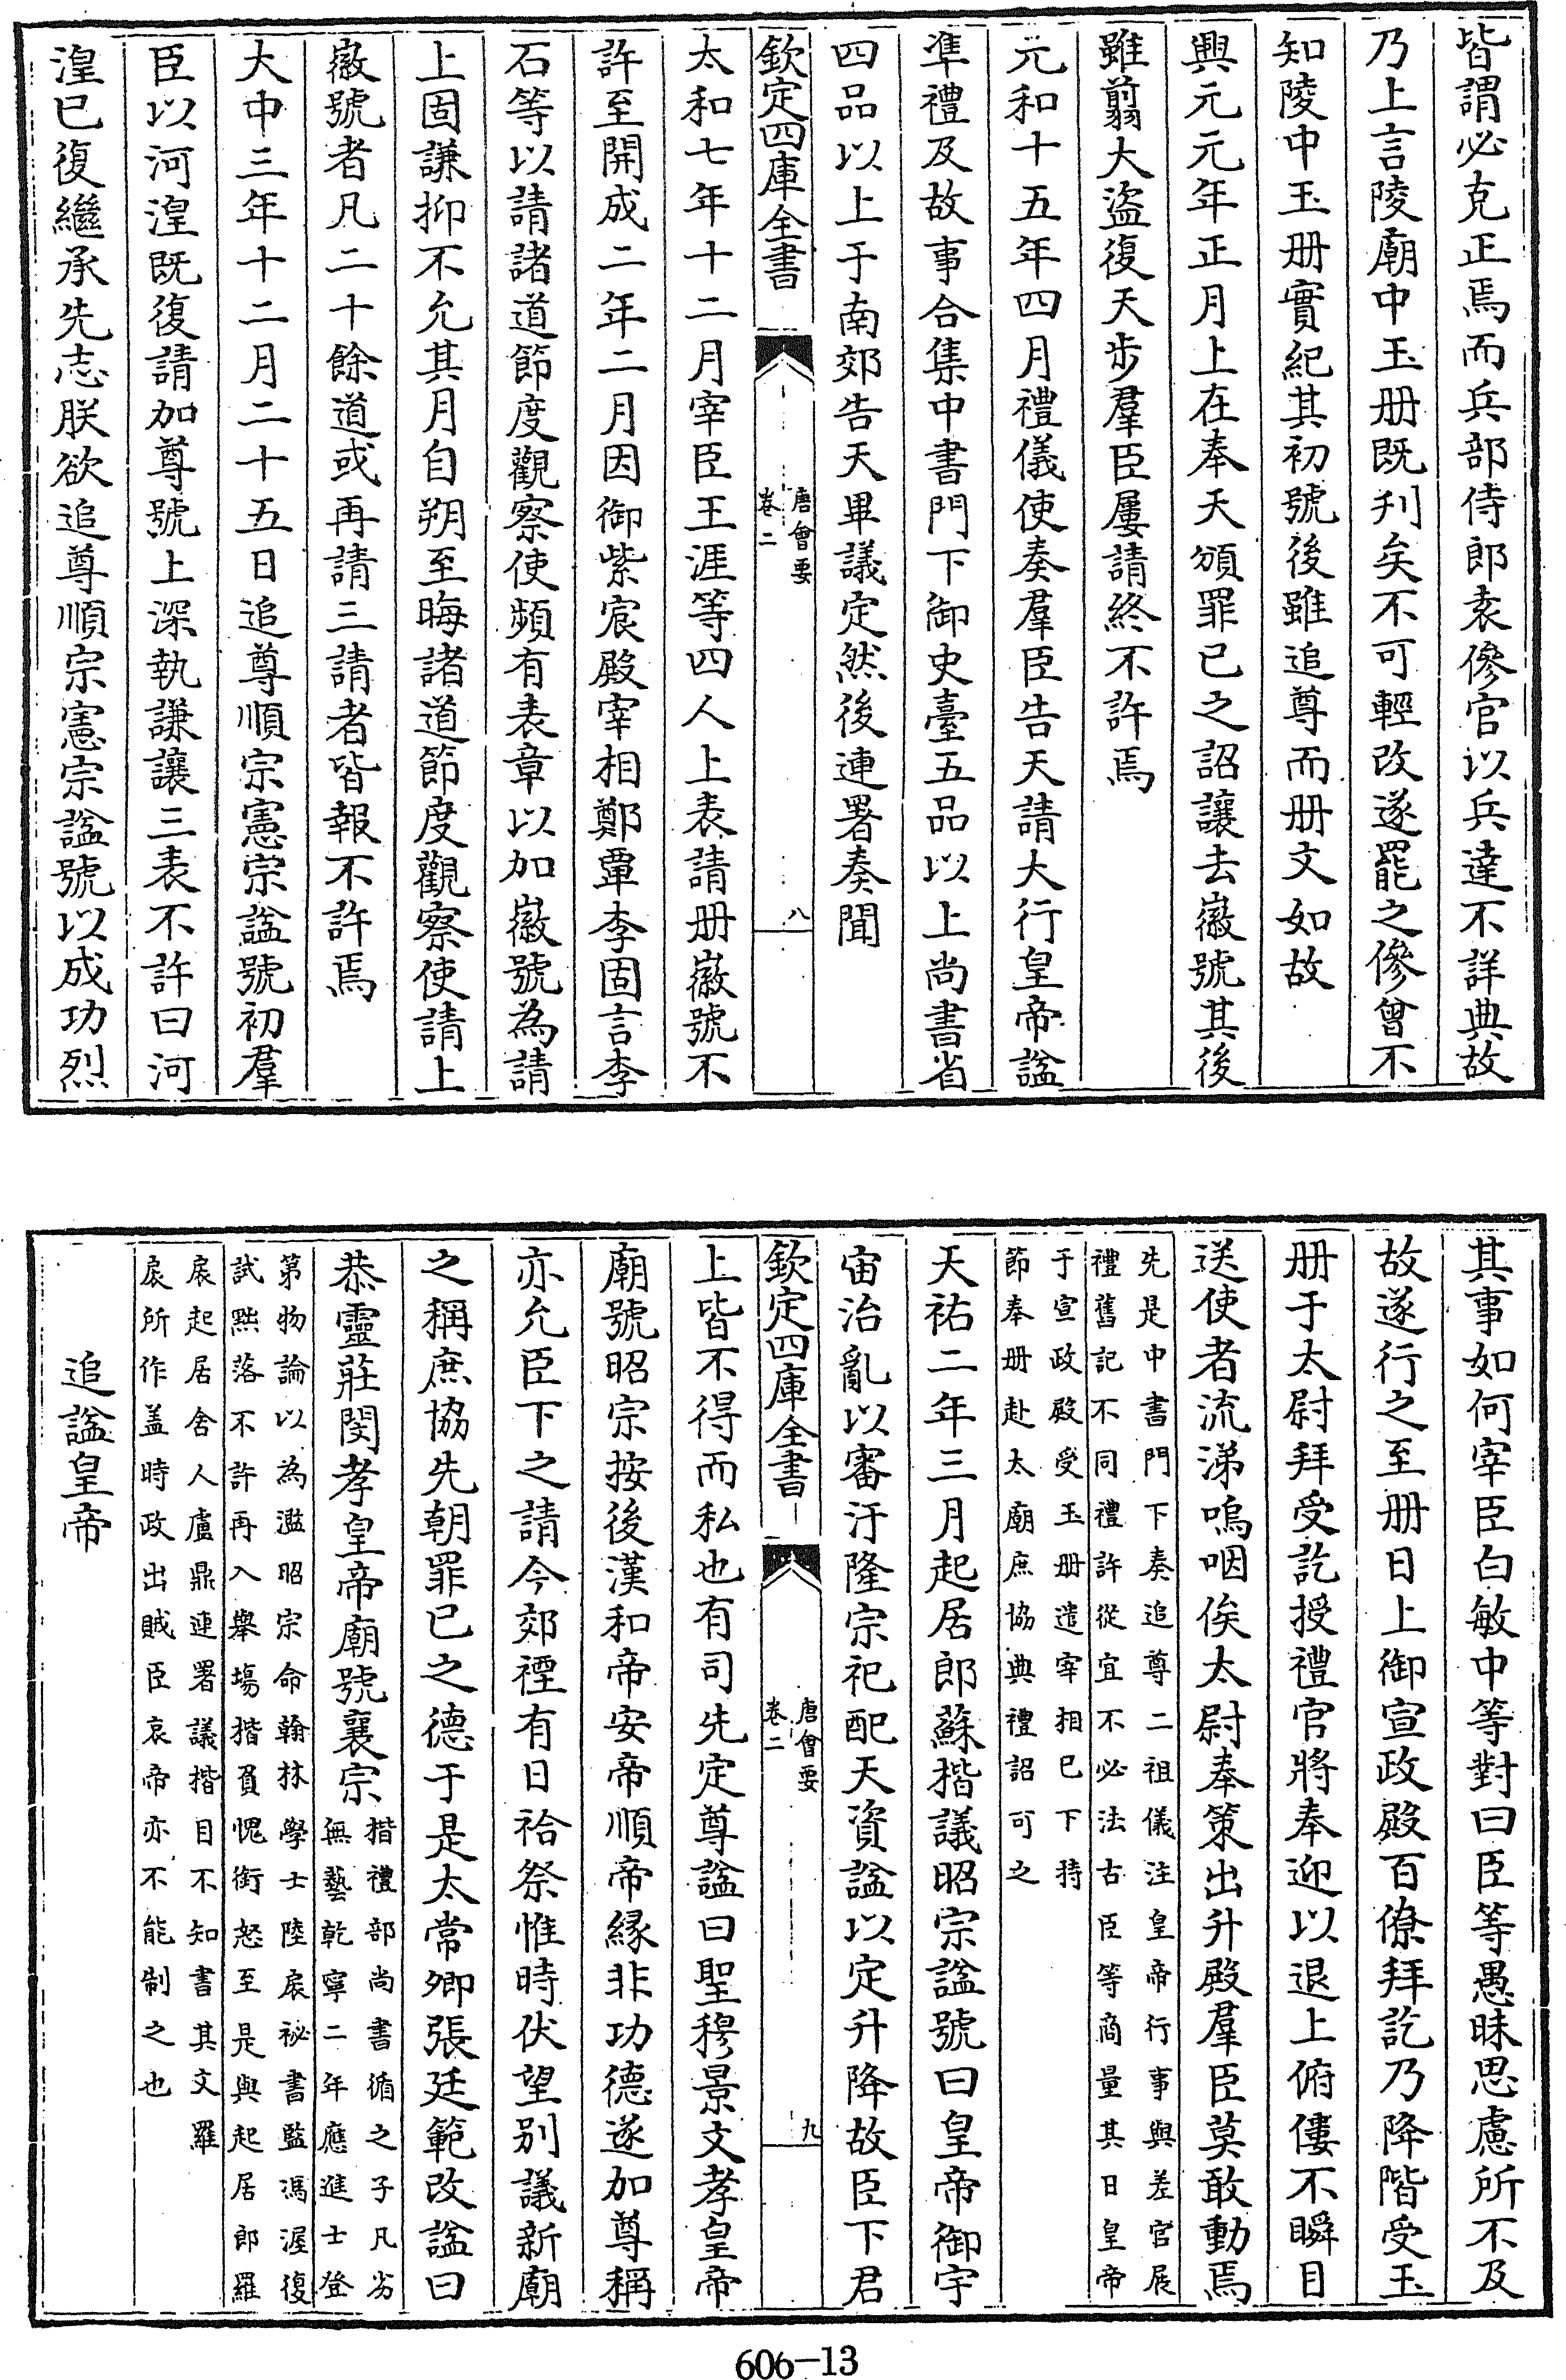 皆謂必克正焉而兵部侍郎袁傪官以兵達不詳典故
乃上言陵廟中玉册既刋矣不可輕改遂罷之傪曾不
知陵中玉册實紀其初號後雖追尊而册文如故
興元元年正月上在奉天頒罪已之詔讓去徽號其後
雖翦大盜復天步羣臣屢請終不許焉
元和十五年四月禮儀使奏羣臣告天請大行皇帝諡
凖禮及故事合集中書門下御史臺五品以上尚書省
四品以上于南郊告天畢議定然後連署奏聞
欽定四庫全書
唐會要
卷二
八
太和七年十二月宰臣王涯等四人上表請册徽號不
許至開成二年二月因御紫宸殿宰相鄭覃李固言李
石等以請諸道節度觀察使頻有表章以加徽號為請
上固謙抑不允其月自朔至晦諸道節度觀察使請上
徽號者凡二十餘道或再請三請者皆報不許焉
大中三年十二月二十五日追尊順宗憲宗諡號初羣
臣以河湟既復請加尊號上深執謙讓三表不許曰河
湟已復繼承先志朕欲追尊順宗憲宗諡號以成功烈
其事如何宰臣白敏中等對曰臣等愚昧思慮所不及
故遂行之至册日上御宣政殿百僚拜訖乃降階受玉
册于太尉拜受訖授禮官將奉迎以退上俯僂不瞬目
送使者流涕嗚咽俟太尉奉策出升殿羣臣莫敢動焉
先是中書門下奏追尊二祖儀注皇帝行事與差官展
禮舊記不同禮許從宜不必法古臣等商量其日皇帝
于宣政殿受玉册遣宰相已下持
節奉册赴太廟庶協典禮詔可之
天祐二年三月起居郎蘇揩議昭宗諡號曰皇帝御宇
宙治亂以審汙隆宗祀配天資諡以定升降故臣下君
欽定四庫全書
唐會要
卷二
九
上皆不得而私也有司先定尊諡曰聖穆景文孝皇帝
廟號昭宗按後漢和帝安帝順帝縁非功德遂加尊稱
亦允臣下之請今郊禋有日祫祭惟時伏望别議新廟
之稱庶協先朝罪已之德于是太常卿張廷範改諡曰
恭靈莊閔孝皇帝廟號襄宗
揩禮部尚書循之子凡劣
無藝乾寧二年應進士登
第物論以為濫昭宗命翰林學士陸扆祕書監馮渥復
試黙落不許再入舉場揩負愧銜怒至是與起居郎羅
扆起居舍人盧鼎連署議揩目不知書其文羅
扆所作盖時政出賊臣哀帝亦不能制之也
追諡皇帝
606-13